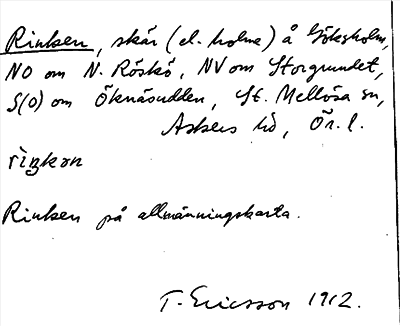 Rinken, skär (el. holme) å Göksholm,
NO om N. Röskö, NV om Storgrundet,
S(O) om Öknäsudden, St. Mellösa sn,
Askers hd, Ör. l.
riŋkən
Rinken på allmänningskarta.
T. Ericsson 1912.